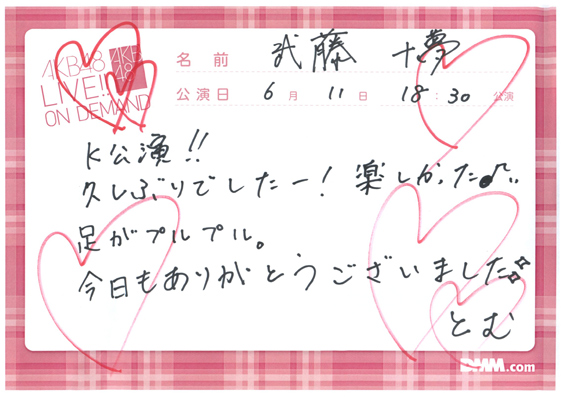 AKB48
LIVE!!
ON DEMAND
AKB
48
名前 武藤 十夢
公演日 6月 11日 18:30 公演
K公演!!
久しぶりでしたー! 楽しかった♪
足がプルプル。
今日もありがとうございました
とむ
DMM.com